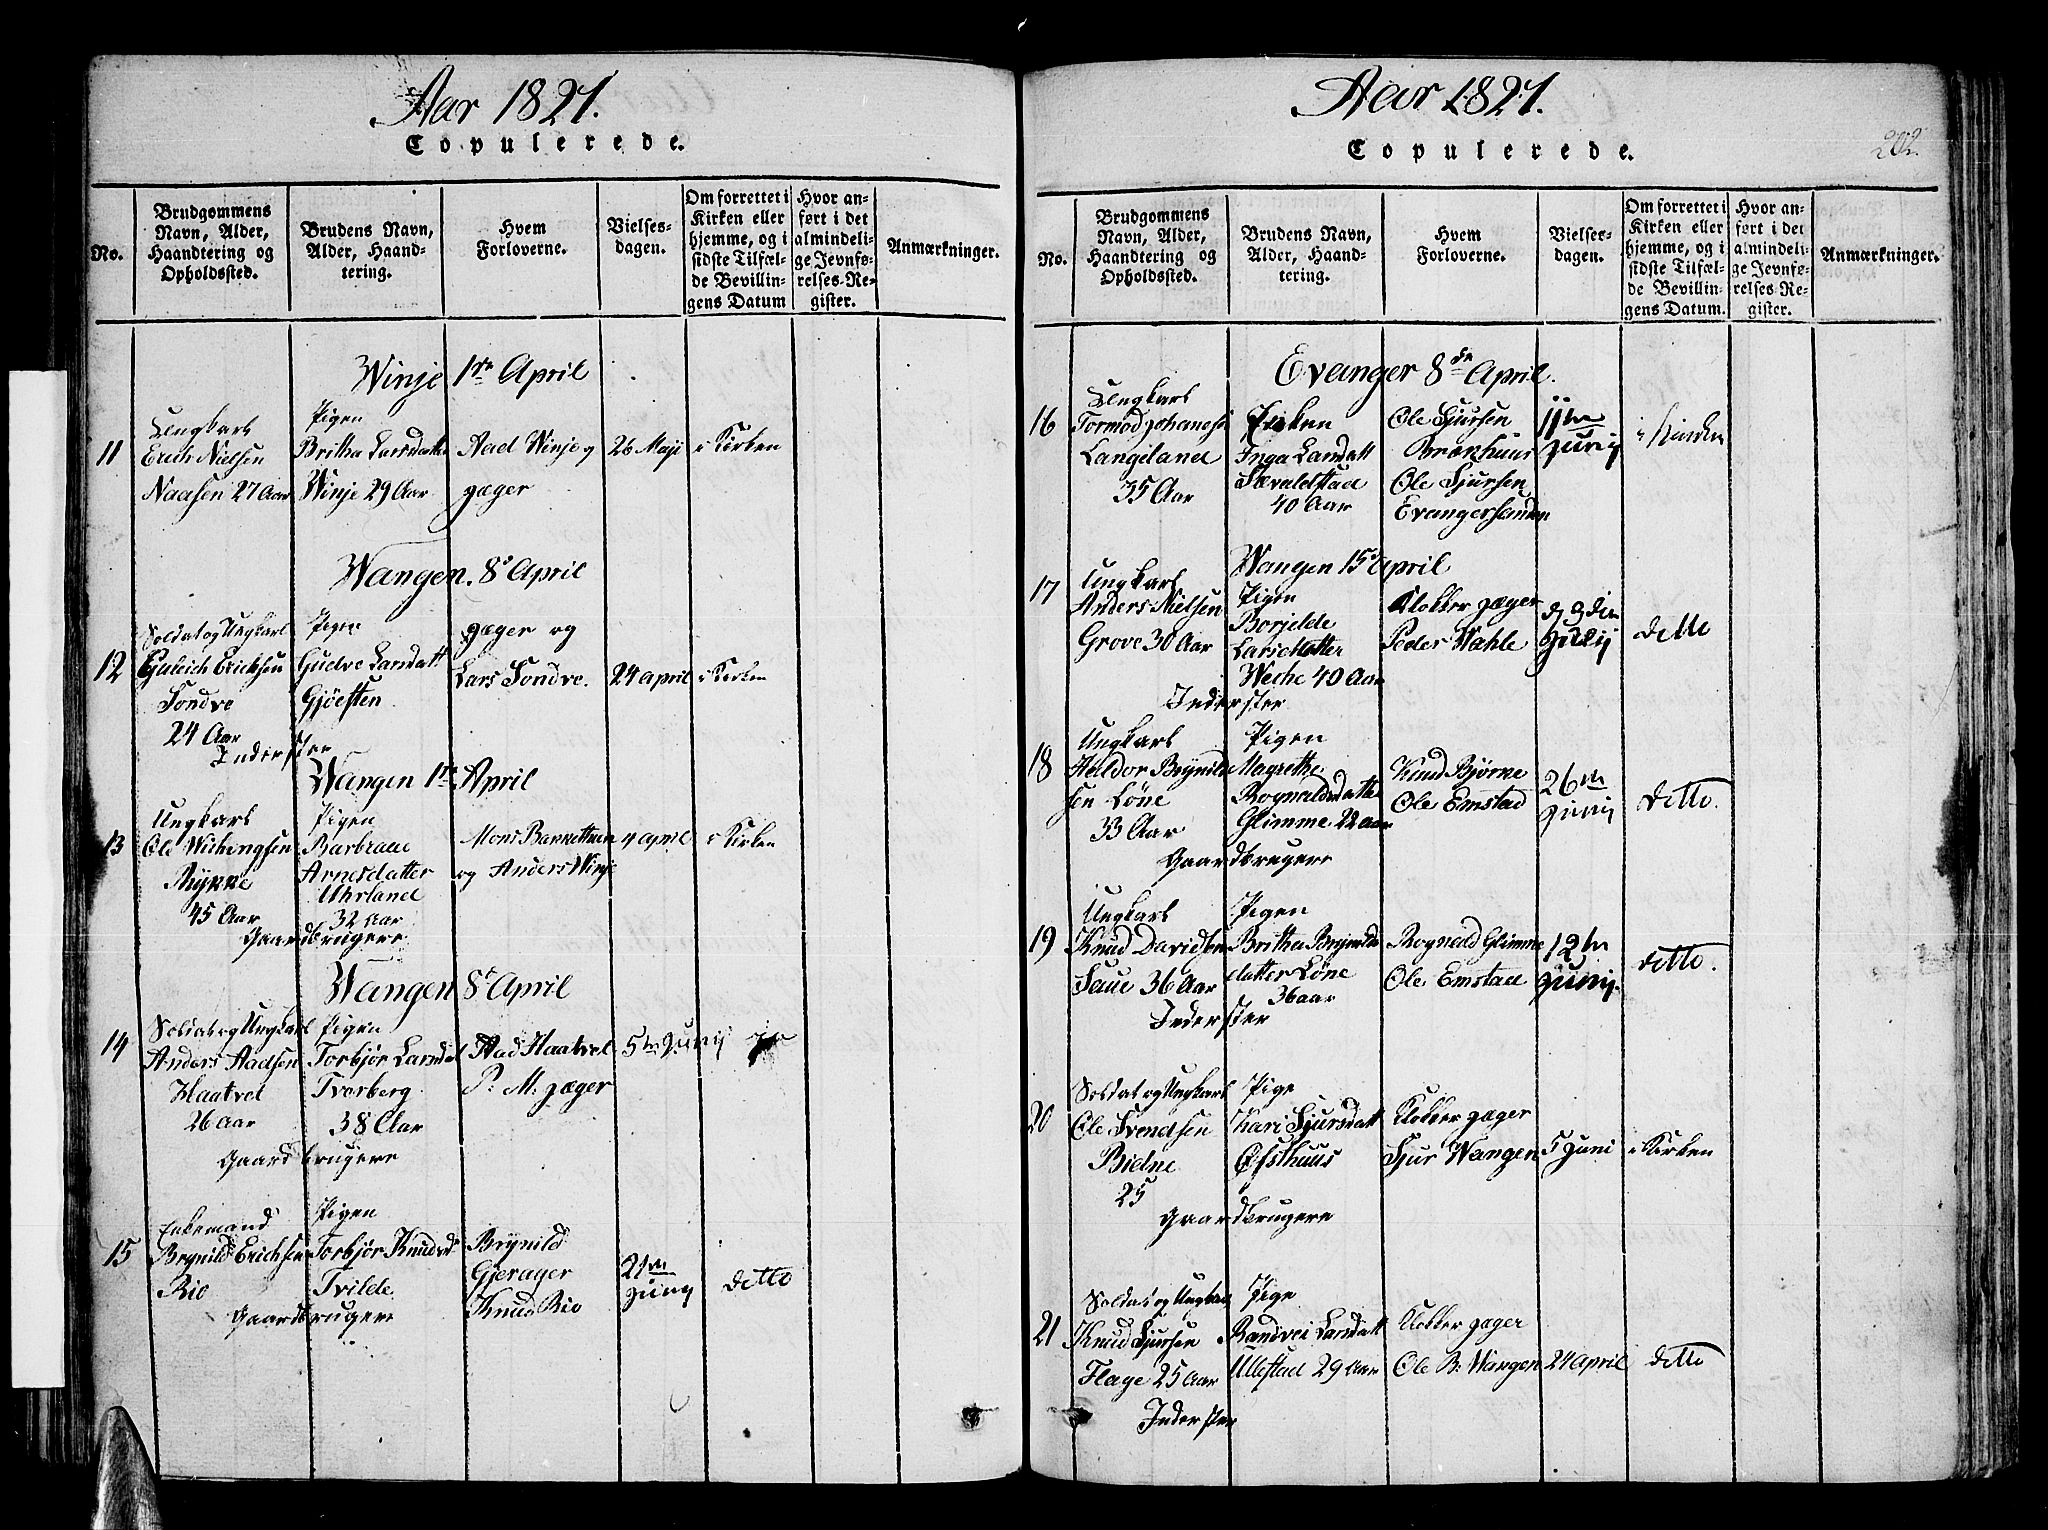 Aar 1821.
Copulerede.
No.
Brudgommens
Navn, Alder,
Haandtering og
Opholdssted.
Brudens Navn,
Alder, Haand-
tering.
Hvem
Forloverne.
Vielses-
dagen.
Om forrettet i
Kirken eller
hjemme, og i
sidste Tilfæl-
de Bevillin-
gens Datum
Hvor an-
ført i det
almindeli-
ge Jevnfø-
relses-Re-
gister.
Anmærkninger.
Winje 1ste April
11
Ungkarl
Erich Nielsen
Naasen 27 Aar
Pigen
Britha Larsdatter
Winje 29 Aar
Aad Winje og
Jæger
26 Maji
i Kirken
Wangen. 8de April
12
Soldat og Ungkarl
Guleich Erichsen
Søndve
24 Aar
Pigen
Gudve Larsdatt
Gjøesten
Jæger og
Lars Søndve.
24 april
i Kirken
Inderster
Wangen 1ste April
13
Ungkarl
Ole Wichingsen
Rykke
45 Aar
Pigen
Barbraae
Arnesdatter
Uhrland
32 Aar
Mons
og Anders Winje
april
i Kirken
Gaardbrugere
Wangen 8de April
14
Soldat og Ungkarl
Anders Aadsen
Haatvet
26 aar
Pigen
Torbjør Larsdat
Tvarberg
38 Aar
Aad Haatvet
P. M. Jæger
5te Junij
Gaardbrugere
15
Enkemand
Brynild Erichsen
Rio
Pigen
Torbjør Knudsd
Tvilde
Brynild
Gjerager
Knud Rio
21de
Junij
ditto
Gaardbrugere
Aar 1821.
Copulerede.
202.
No.
Brudgommens
Navn, Alder,
Haandtering og
Opholdssted.
Brudens Navn,
Alder, Haand-
tering.
Hvem
Forloverne.
Vielses-
dagen.
Om forrettet i
Kirken eller
hjemme, og i
sidste Tilfæl-
de Bevillin-
gens Datum.
Hvor an-
ført i det
almindeli-
ge Jevnfø-
relses Re-
gister.
Anmærkninger.
Evanger 8de April.
16
Ungkarl
Tormod Johanesen
Langeland
35 Aar
Enken
Inga Larsdatt
Sævaldstad
40 Aar
Ole Sjursen
Brækhuus
Ole Sjursen
Evangersanden
11te
Junij
i Kirken
Wangen 15d April
17
Ungkarl
Anders Nielsen
Grove 30 Aar
Pigen
Borjelde
Larsdatter
Weche 40 Aar
Klokker Jæger
Peder Wahle
Julij
ditto
Inderster
18
Ungkarl
Helldor Brynild
sen Løne
33 Aar
Pigen
Magrethe
Rognaldsdatter
Glimme 22 aar
Knud Bjørke
Ole Emstad
26de
Junij
Ditto.
Gaardbrugere
19
Ungkarl
Knud Davidsen
Saue 36 Aar
Pigen
Britha Brynilds
datter Løne
36 aar
Rognald Glimme
Ole Emstad
12te
Junij.
ditto.
Inderster
20
Soldat og Ungkarl
Ole Svendsen
Bidne
25
Pige
Kari Sjursdatt
Øfsthuus
Klokker Jæger
Sjur Wangen
5 Juni
i Kirken
Gaardbrugere
21
Soldat og Ungkarl
Knud Sjursen
Flage 25 aar
Pige
Randvei Larsdatt
Ullestad 29 aar
Klokker Jæger
Ole B. Wangen
24 April
ditto
Inderster